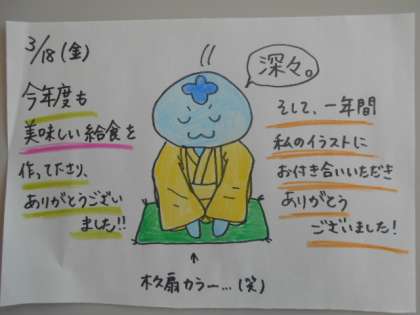 3/18(金)
今年度も
美味しい給食を
作って下さり、
ありがとうござい
ました!!
深々。
そして、一年間
私のイラストに
お付き合いいただき
ありがとう
ございました!
↑
木久扇カラー…(笑)